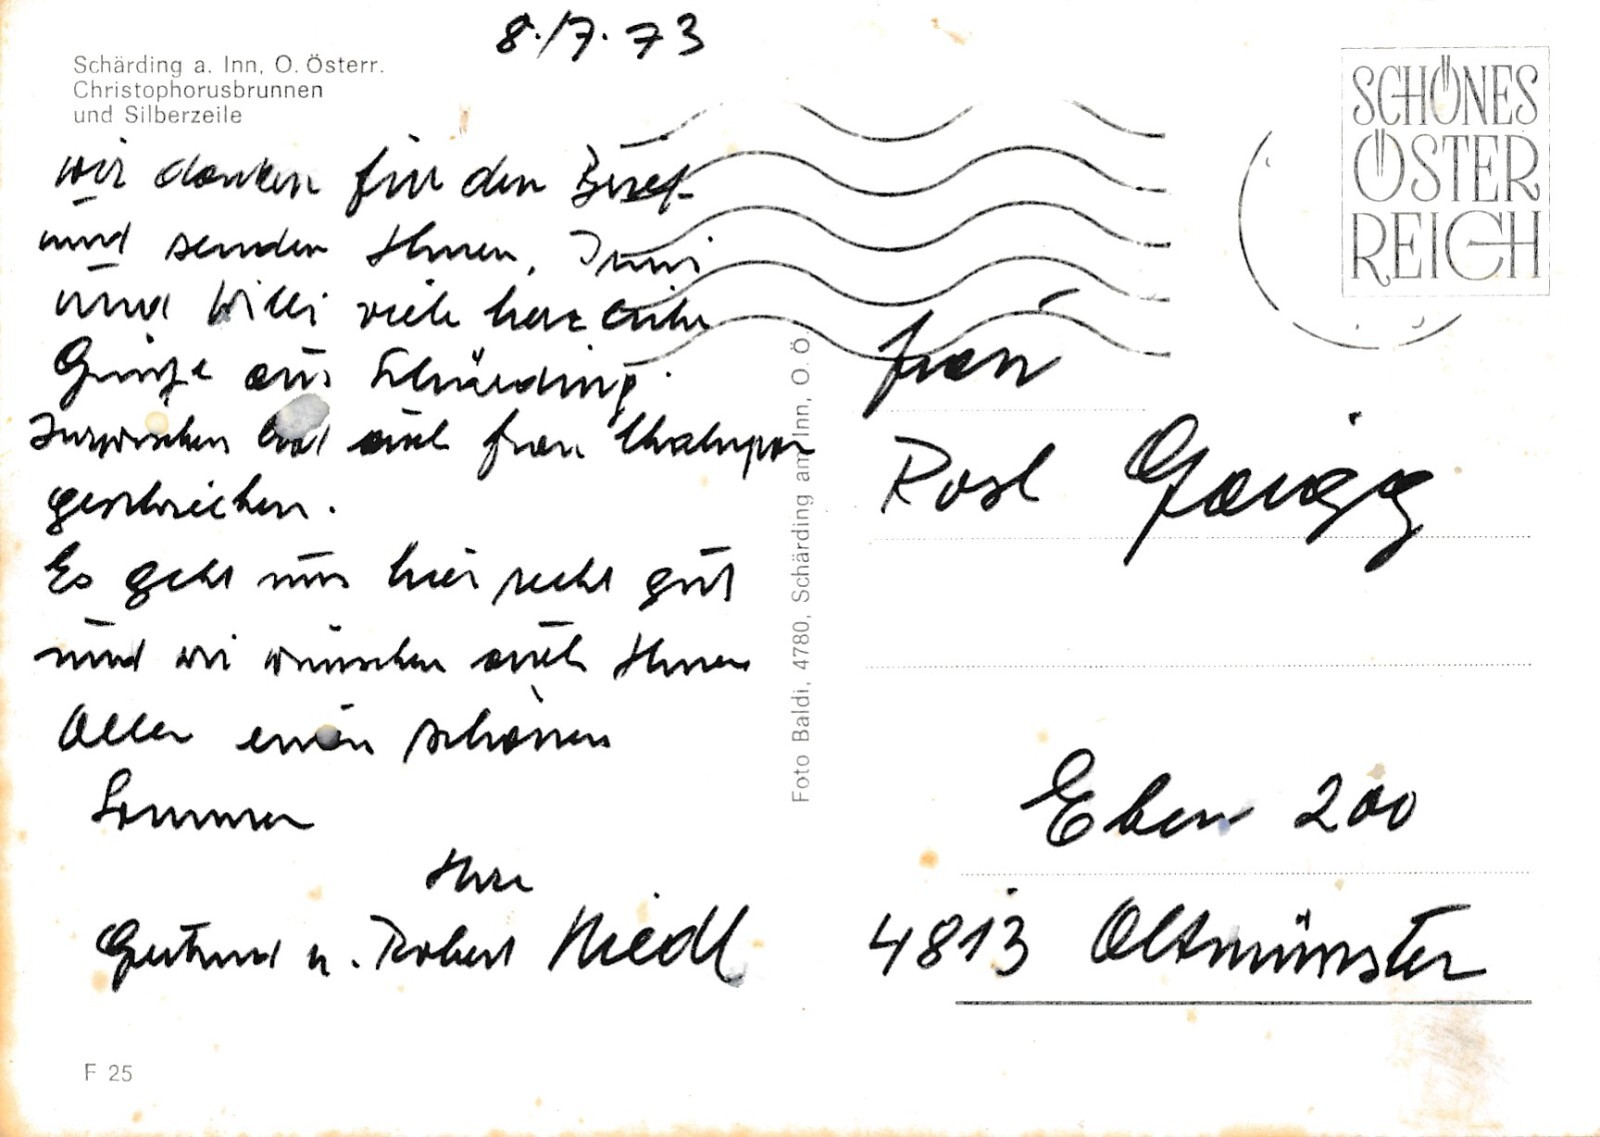 8./7. 73
Schärding a. Inn, O. Österr.
Christophorusbrunnen
und Silberzeile
wir danken für den Brief
und senden Ihnen,
und Willi viele herzliche
Grüße aus Schärding.
Inzwischen hat auch Frau
geschrieben.
Es geht uns hier recht gut
und wir wünschen auch Ihnen
Allen einen schönen
Sommer
Ihre
Gertrud u. Robert Riedl
F 25
Foto Baldi, 4780, Schärding am Inn, O. Ö.
SCHÖNES
ÖSTER
REICH
Frau
Rosl
Eben 200
4813 Altmünster